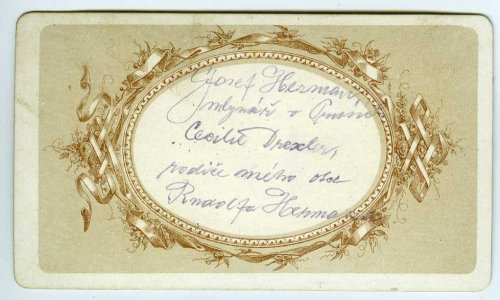 Josef Herman
mlynář v
Cecilie Drexler,
rodiče mého otce
Rudolfa Herma